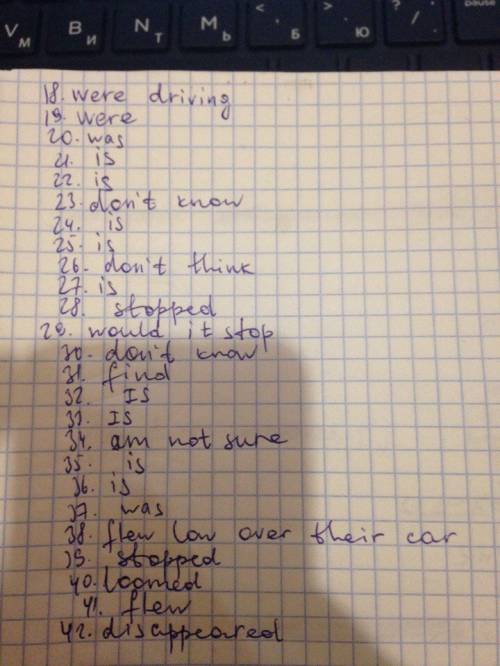 V М
B И
N Т
M Ь
< , Б
> . Ю
? / .
pause
18. were driving
19. were
20. was
21. is
22. is
23. don't know
24. is
25. is
26. don't think
27. is
28. stopped
29. would it stop
30. don't know
31. find
32. IS
33. IS
34. am not sure
35. is
36. is
37. was
38. flew low over their car
39. stopped
40. loomed
41. flew
42. disappeared